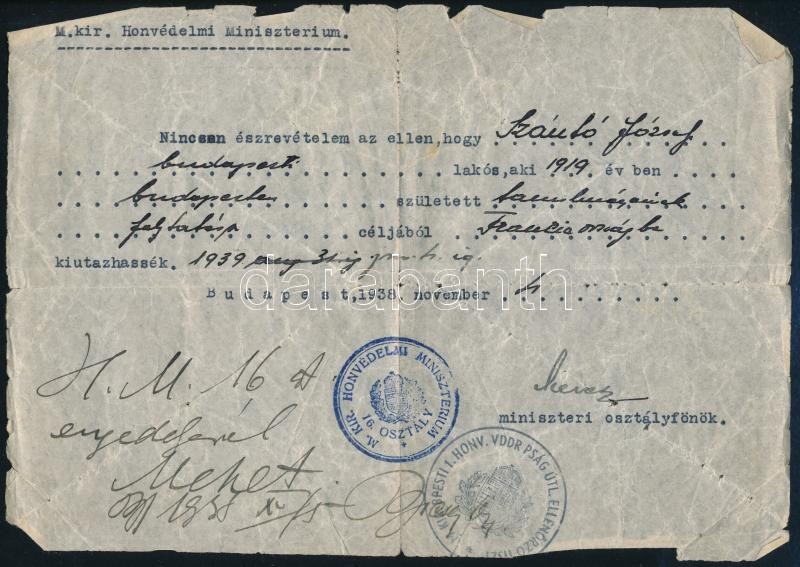 M.kir. Honvédelmi Miniszterium.
Nincsen észrevételem az ellen,hogy Szántó József
budapesti lakós,aki 1919 év ben
budapesten született tanulmányainak
folytatása céljából Franciaországba
kiutazhassék. 1939 aug 31-ig ig.
Budapest,1938. november 4.
darabanth
H. M. 16 o
engedélyével
Mehet.
Bp 1938 XI/5
M. KIR. HONVÉDELMI MINISZTERIUM
16. OSZTÁLY
miniszteri osztályfönök.
M. KIR. BPESTI I. HONV. VDDR PSÁG ÚTL. ELLENŐRZŐ TISZT